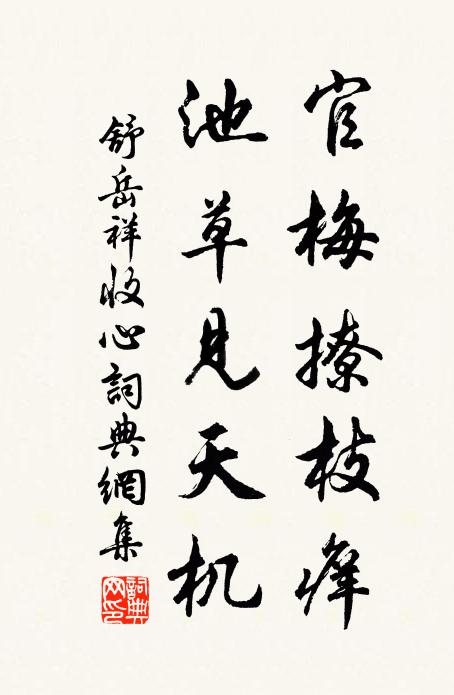 官梅撩枝痒
池草見天机
舒岳祥收心詞典網集
詞典
网印